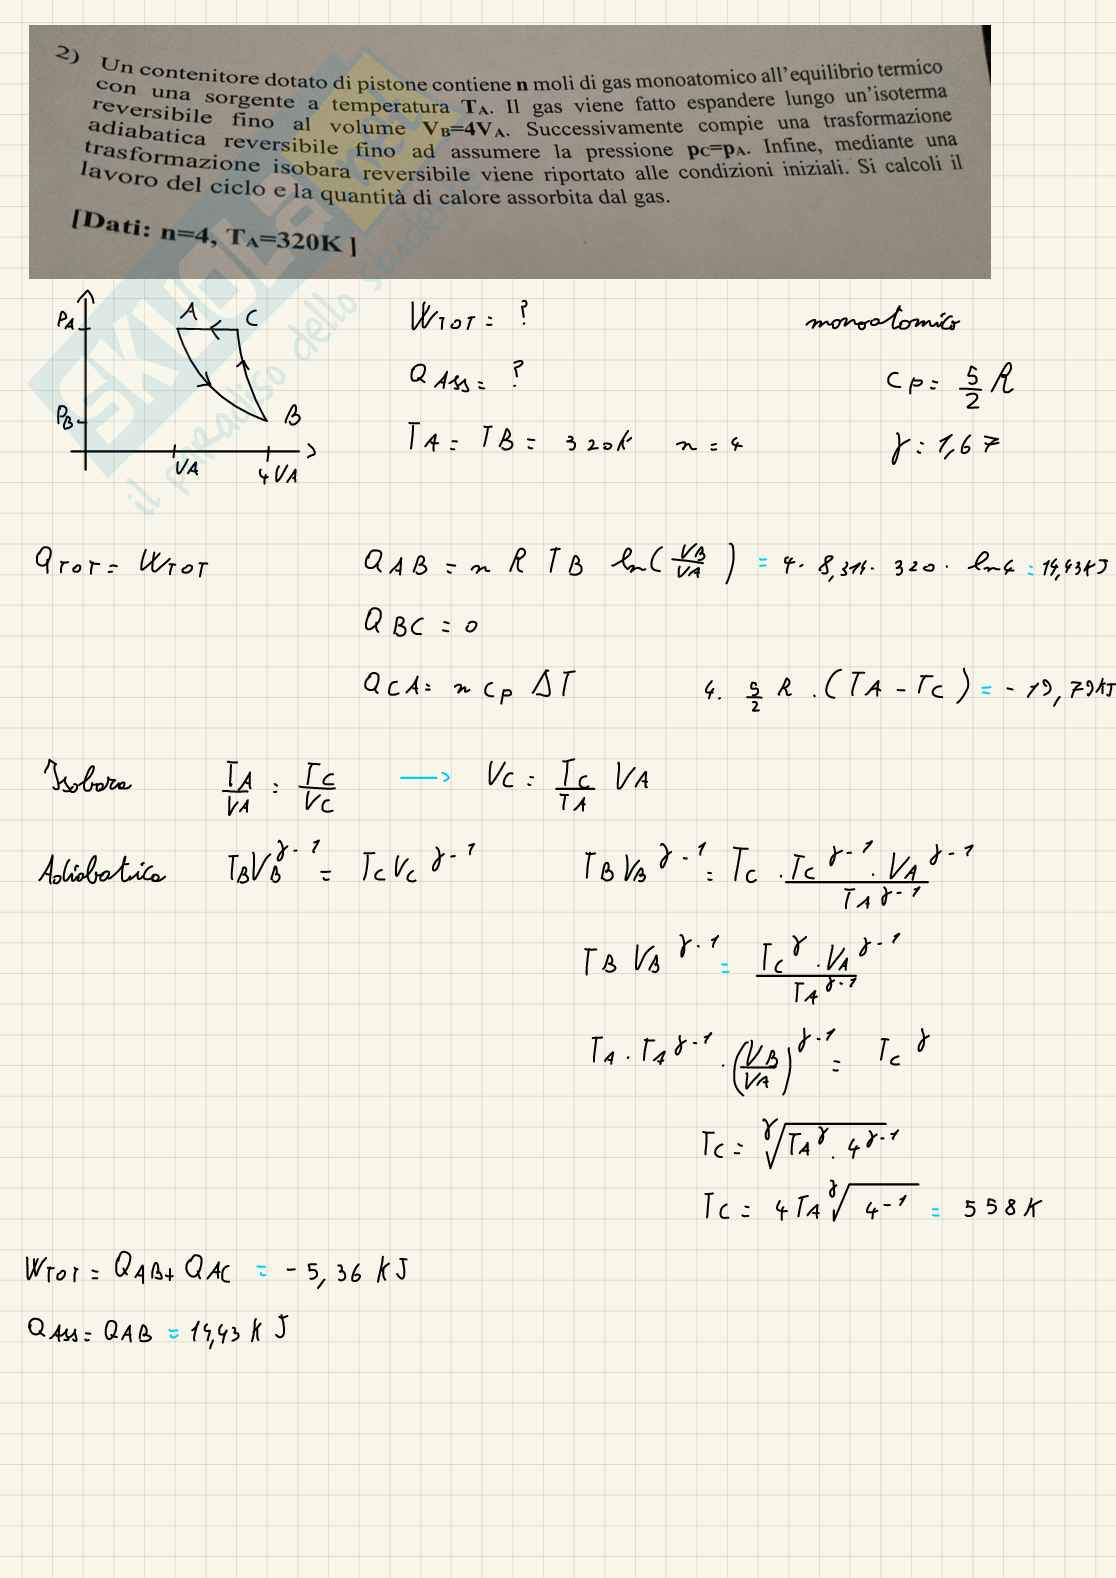 2) Un contenitore dotato di pistone contiene n moli di gas monoatomico all'equilibrio termico
con una sorgente a temperatura TA. Il gas viene fatto espandere lungo un'isoterma
reversibile fino al volume VB=4VA. Successivamente compie una trasformazione
adiabatica reversibile fino ad assumere la pressione pC=pA. Infine, mediante una
trasformazione isobara reversibile viene riportato alle condizioni iniziali. Si calcoli il
lavoro del ciclo e la quantità di calore assorbita dal gas.
[Dati: n=4, TA=320K ]
SKUOLA.net
il paradiso dello studente
PA A C
PB B
VA 4VA
WTOT = ? monoatomico
QASS = ? cp = 5/2 R
TA = TB = 320K n = 4 γ = 1,67
QTOT = WTOT QAB = n R TB ln(VB/VA) = 4 · 8,314 · 320 · ln4 = 14,43KJ
QBC = 0
QCA = n cp ΔT 4 · 5/2 R · (TA - TC) = - 19,79KJ
Isobara TA/VA = TC/VC → VC = TC/TA VA
Adiabatica TBVB^γ-1 = TCVC^γ-1 TBVB^γ-1 = TC · TC^γ-1 · VA^γ-1 / TA^γ-1
TBVB^γ-1 = TC^γ · VA^γ-1 / TA^γ-1
TA · TA^γ-1 · (VB/VA)^γ-1 = TC^γ
TC = γ√TA^γ · 4^γ-1
TC = 4TA γ√4^-1 = 558K
WTOT = QAB + QAC = - 5,36 KJ
QASS = QAB = 14,43 KJ